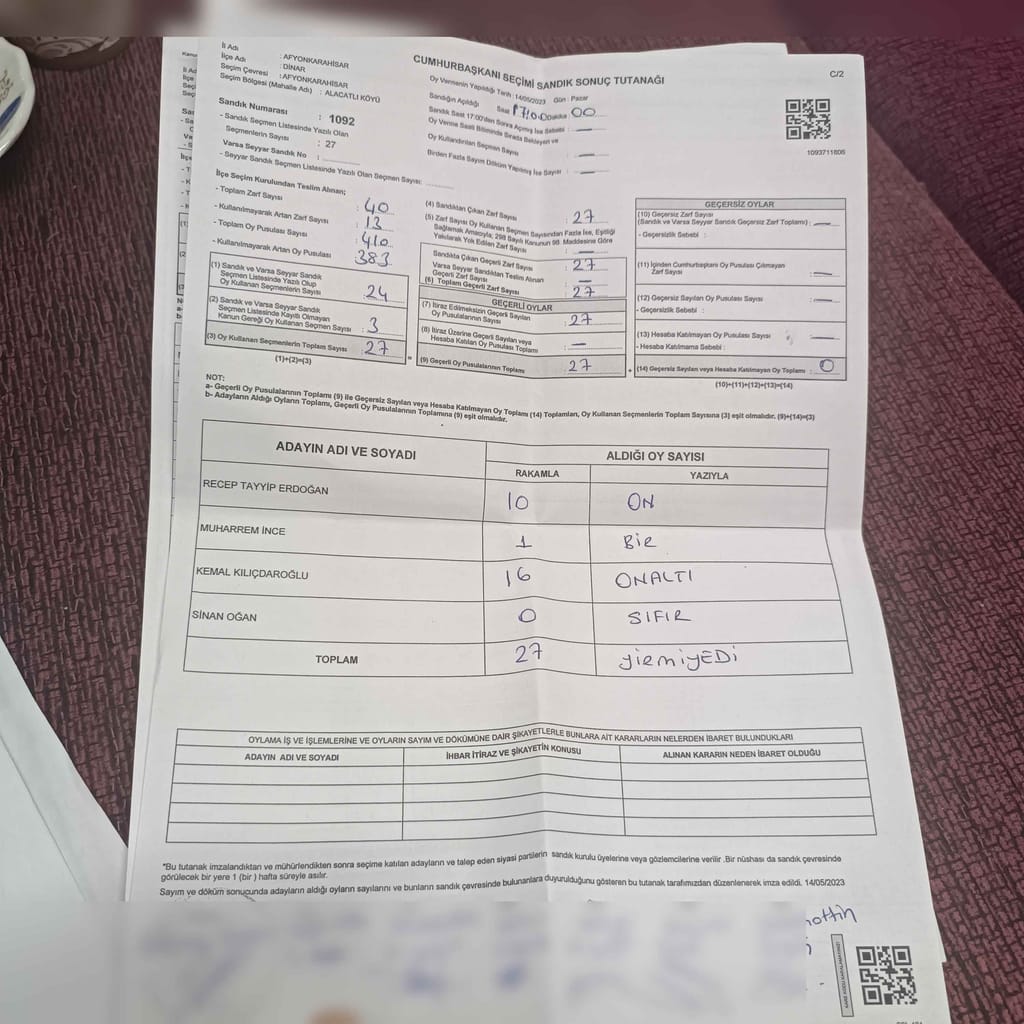 CUMHURBAŞKANI SEÇİMİ SANDIK SONUÇ TUTANAĞI
C/2
İl Adı : AFYONKARAHİSAR
İlçe Adı : DİNAR
Seçim Çevresi : AFYONKARAHİSAR
Seçim Bölgesi (Mahalle Adı) : ALACATLI KÖYÜ
Sandık Numarası : 1092
- Sandık Seçmen Listesinde Yazılı Olan
Seçmenlerin Sayısı : 27
Varsa Seyyar Sandık No :
- Seyyar Sandık Seçmen Listesinde Yazılı Olan Seçmen Sayısı:
Oy Vermenin Yapıldığı Tarih : 14/05/2023 Gün : Pazar
Sandığın Açıldığı Saat 17:00 Dakika 00
Sandık Saat 17:00'den Sonra Açılmış İse Sebebi : —
Oy Verme Saati Bitiminde Sırada Bekleyen ve
Oy Kullandırılan Seçmen Sayısı : —
Birden Fazla Sayım Döküm Yapılmış İse Sayısı : —
1093711806
İlçe Seçim Kurulundan Teslim Alınan;
- Toplam Zarf Sayısı : 40
- Kullanılmayarak Artan Zarf Sayısı : 13
- Toplam Oy Pusulası Sayısı : 410
- Kullanılmayarak Artan Oy Pusulası : 383
(1) Sandık ve Varsa Seyyar Sandık
Seçmen Listesinde Yazılı Olup
Oy Kullanan Seçmenlerin Sayısı : 24
(2) Sandık ve Varsa Seyyar Sandık
Seçmen Listesinde Kayıtlı Olmayan
Kanun Gereği Oy Kullanan Seçmen Sayısı : 3
(3) Oy Kullanan Seçmenlerin Toplam Sayısı : 27
(1)+(2)=(3)
(4) Sandıktan Çıkan Zarf Sayısı : 27
(5) Zarf Sayısı Oy Kullanan Seçmen Sayısından Fazla İse, Eşitliği
Sağlamak Amacıyla; 298 Sayılı Kanunun 98. Maddesine Göre
Yakılarak Yok Edilen Zarf Sayısı : —
Sandıkta Çıkan Geçerli Zarf Sayısı : 27
Varsa Seyyar Sandıktan Teslim Alınan
Geçerli Zarf Sayısı : —
(6) Toplam Geçerli Zarf Sayısı : 27
GEÇERLİ OYLAR
(7) İtiraz Edilmeksizin Geçerli Sayılan
Oy Pusulalarının Sayısı : 27
(8) İtiraz Üzerine Geçerli Sayılan veya
Hesaba Katılan Oy Pusulası Toplamı : —
(9) Geçerli Oy Pusulalarının Toplamı : 27
GEÇERSİZ OYLAR
(10) Geçersiz Zarf Sayısı
(Sandık ve Varsa Seyyar Sandık Geçersiz Zarf Toplamı) : —
- Geçersizlik Sebebi :
(11) İçinden Cumhurbaşkanı Oy Pusulası Çıkmayan
Zarf Sayısı : —
(12) Geçersiz Sayılan Oy Pusulası Sayısı : —
- Geçersizlik Sebebi :
(13) Hesaba Katılmayan Oy Pusulası Sayısı : —
- Hesaba Katılmama Sebebi :
(14) Geçersiz Sayılan veya Hesaba Katılmayan Oy Toplamı : 0
(10)+(11)+(12)+(13)=(14)
NOT:
a- Geçerli Oy Pusulalarının Toplamı (9) ile Geçersiz Sayılan veya Hesaba Katılmayan Oy Toplamı (14) Toplamları, Oy Kullanan Seçmenlerin Toplam Sayısına (3) eşit olmalıdır. (9)+(14)=(3)
b- Adayların Aldığı Oyların Toplamı, Geçerli Oy Pusulalarının Toplamına (9) eşit olmalıdır.
ADAYIN ADI VE SOYADI ALDIĞI OY SAYISI
RAKAMLA YAZIYLA
RECEP TAYYİP ERDOĞAN 10 ON
MUHARREM İNCE 1 BİR
KEMAL KILIÇDAROĞLU 16 ONALTI
SİNAN OĞAN 0 SIFIR
TOPLAM 27 YİRMİYEDİ
OYLAMA İŞ VE İŞLEMLERİNE VE OYLARIN SAYIM VE DÖKÜMÜNE DAİR ŞİKAYETLERLE BUNLARA AİT KARARLARIN NELERDEN İBARET BULUNDUKLARI
ADAYIN ADI VE SOYADI İHBAR İTİRAZ VE ŞİKAYETİN KONUSU ALINAN KARARIN NEDEN İBARET OLDUĞU
*Bu tutanak imzalandıktan ve mühürlendikten sonra seçime katılan adayların ve talep eden siyasi partilerin sandık kurulu üyelerine veya gözlemcilerine verilir .Bir nüshası da sandık çevresinde
görülecek bir yere 1 (bir ) hafta süreyle asılır.
Sayım ve döküm sonucunda adayların aldığı oyların sayılarını ve bunların sandık çevresinde bulunanlara duyurulduğunu gösteren bu tutanak tarafımızdan düzenlenerek imza edildi. 14/05/2023